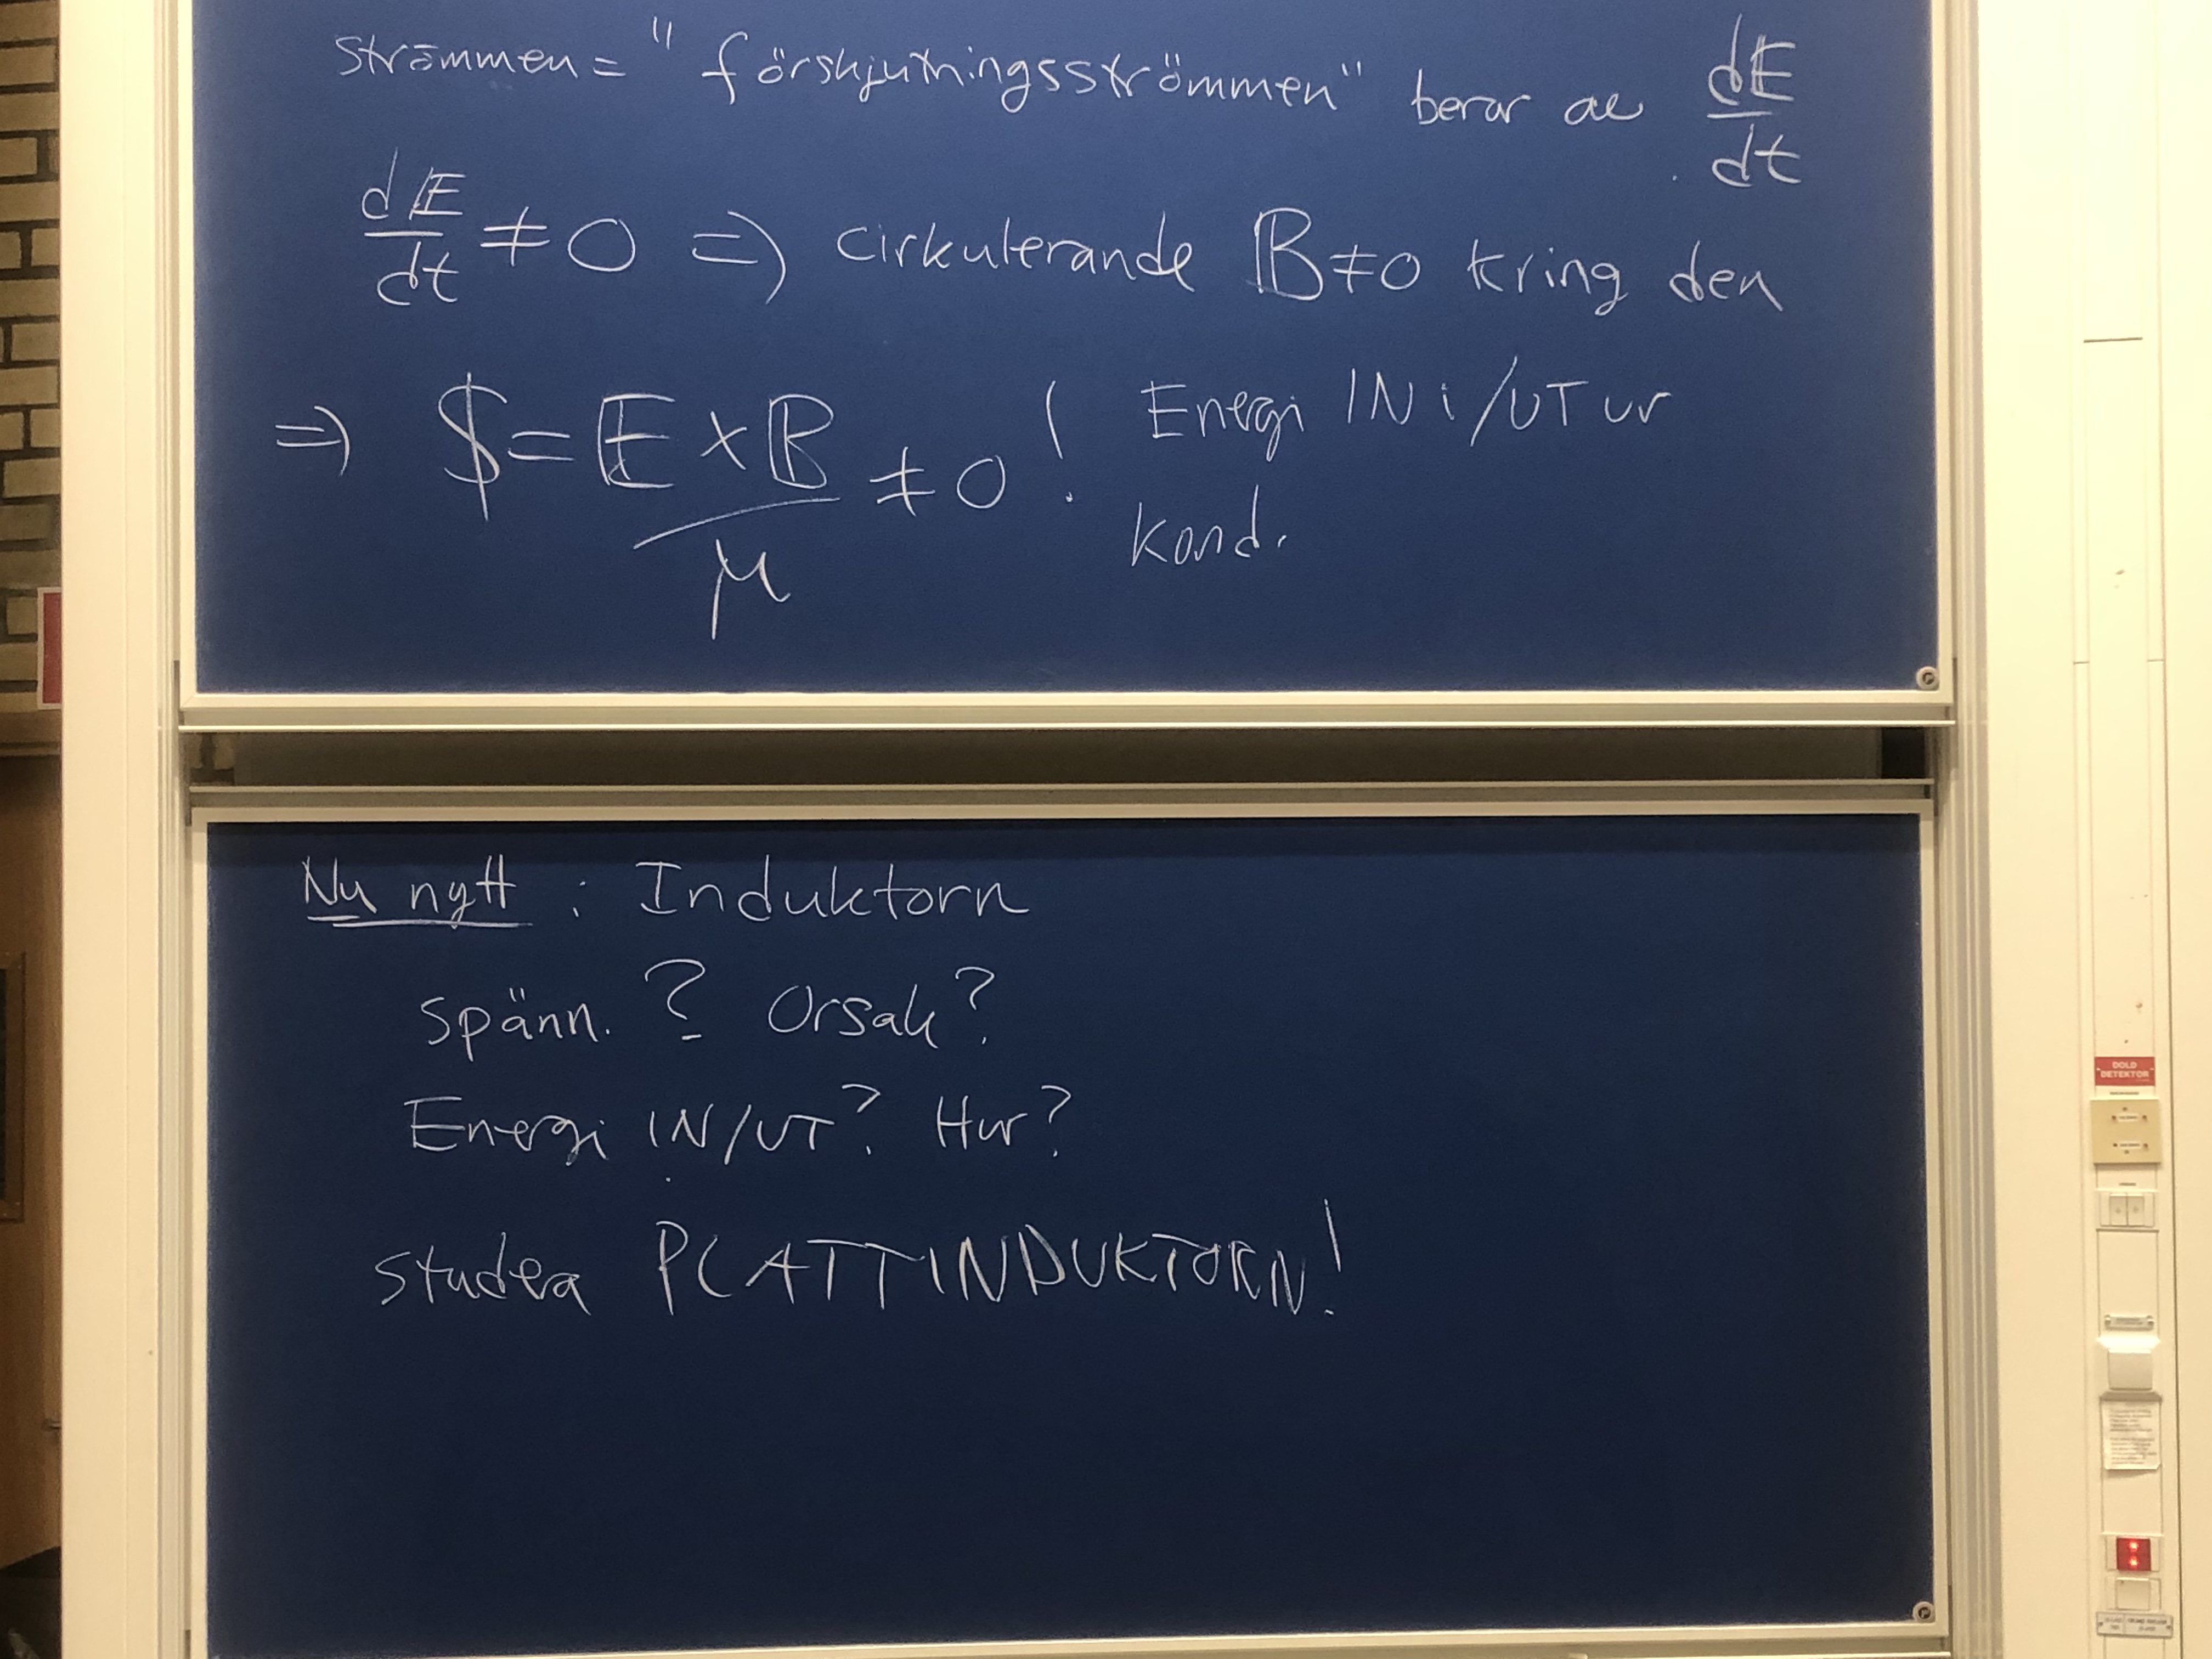 strömmen = "förskjutningsströmmen" beror av dE/dt
dE/dt ≠ 0 ⇒ cirkulerande B ≠ 0 kring den
⇒ S = E × B / μ ≠ 0 ! Energi IN i/UT ur
kond.
Nu nytt : Induktorn
Spänn. ? Orsak?
Energi IN/UT? Hur?
studera PLATTINDUKTORN!
DOLD
DETEKTOR